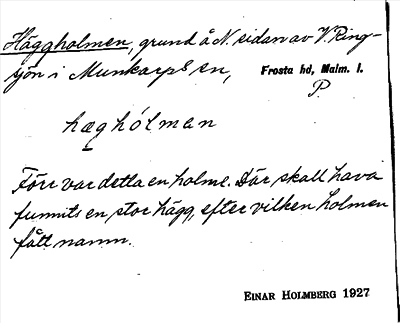 Häggholmen, grund å N. sidan av V. Ring-
sjön i Munkarps sn, Frosta hd, Malm. l.
P.
hæghólmen
Förr var detta en holme. Där skall hava
funnits en stor hägg, efter vilken holmen
fått namn.
EINAR HOLMBERG 1927